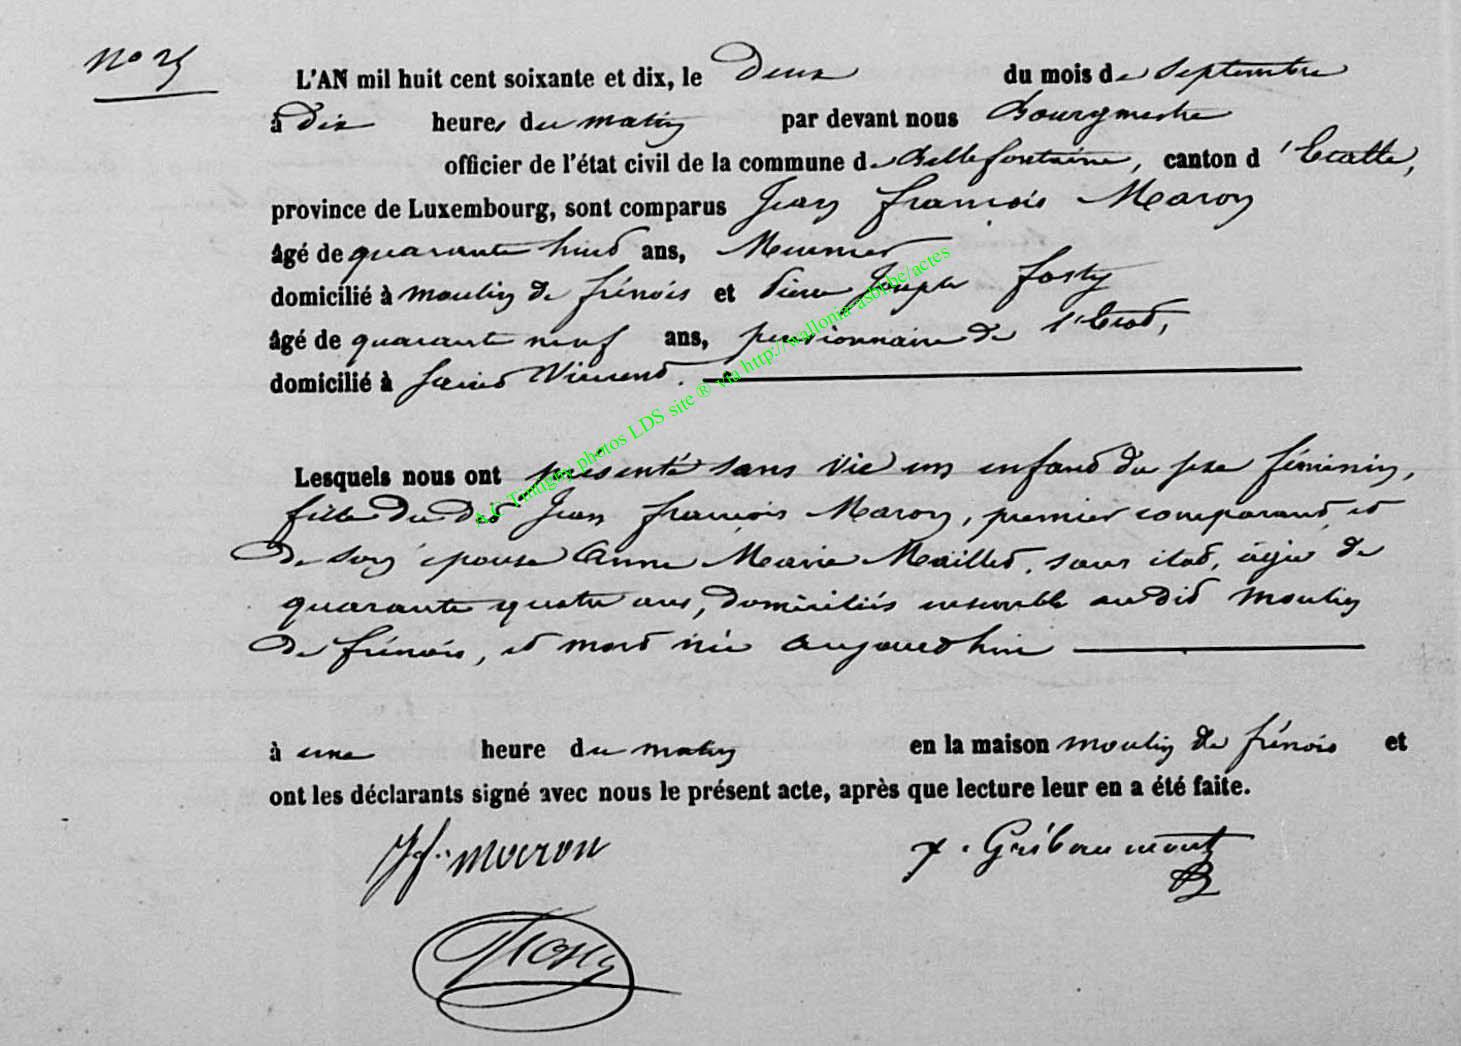 N° 25
L'AN mil huit cent soixante et dix, le Deux du mois de Septembre
à Dix heures du matin par devant nous Bourgmestre
officier de l'état civil de la commune de Bellefontaine, canton d'Etalle,
province de Luxembourg, sont comparus Jean François Maron
âgé de quarante huit ans, Meunier
domicilié à moulin de frénois et Pierre Joseph Fosty
âgé de quarante neuf ans, pensionnaire de l'Etat,
domicilié à Saint Vincent.
Lesquels nous ont présenté sans vie un enfant du sexe féminin,
fille du dit Jean François Maron, premier comparant, et
de son épouse Anne Marie Maillet, sans état, âgée de
quarante quatre ans, domiciliés ensemble au dit moulin
de frénois, et mort née aujourd'hui
à une heure du matin en la maison moulin de frénois et
ont les déclarants signé avec nous le présent acte, après que lecture leur en a été faite.
Jf. maron
Gribaumont
Fosty
A.C Tintigny photos LDS site ® via http://wallonia-asbl.be/actes